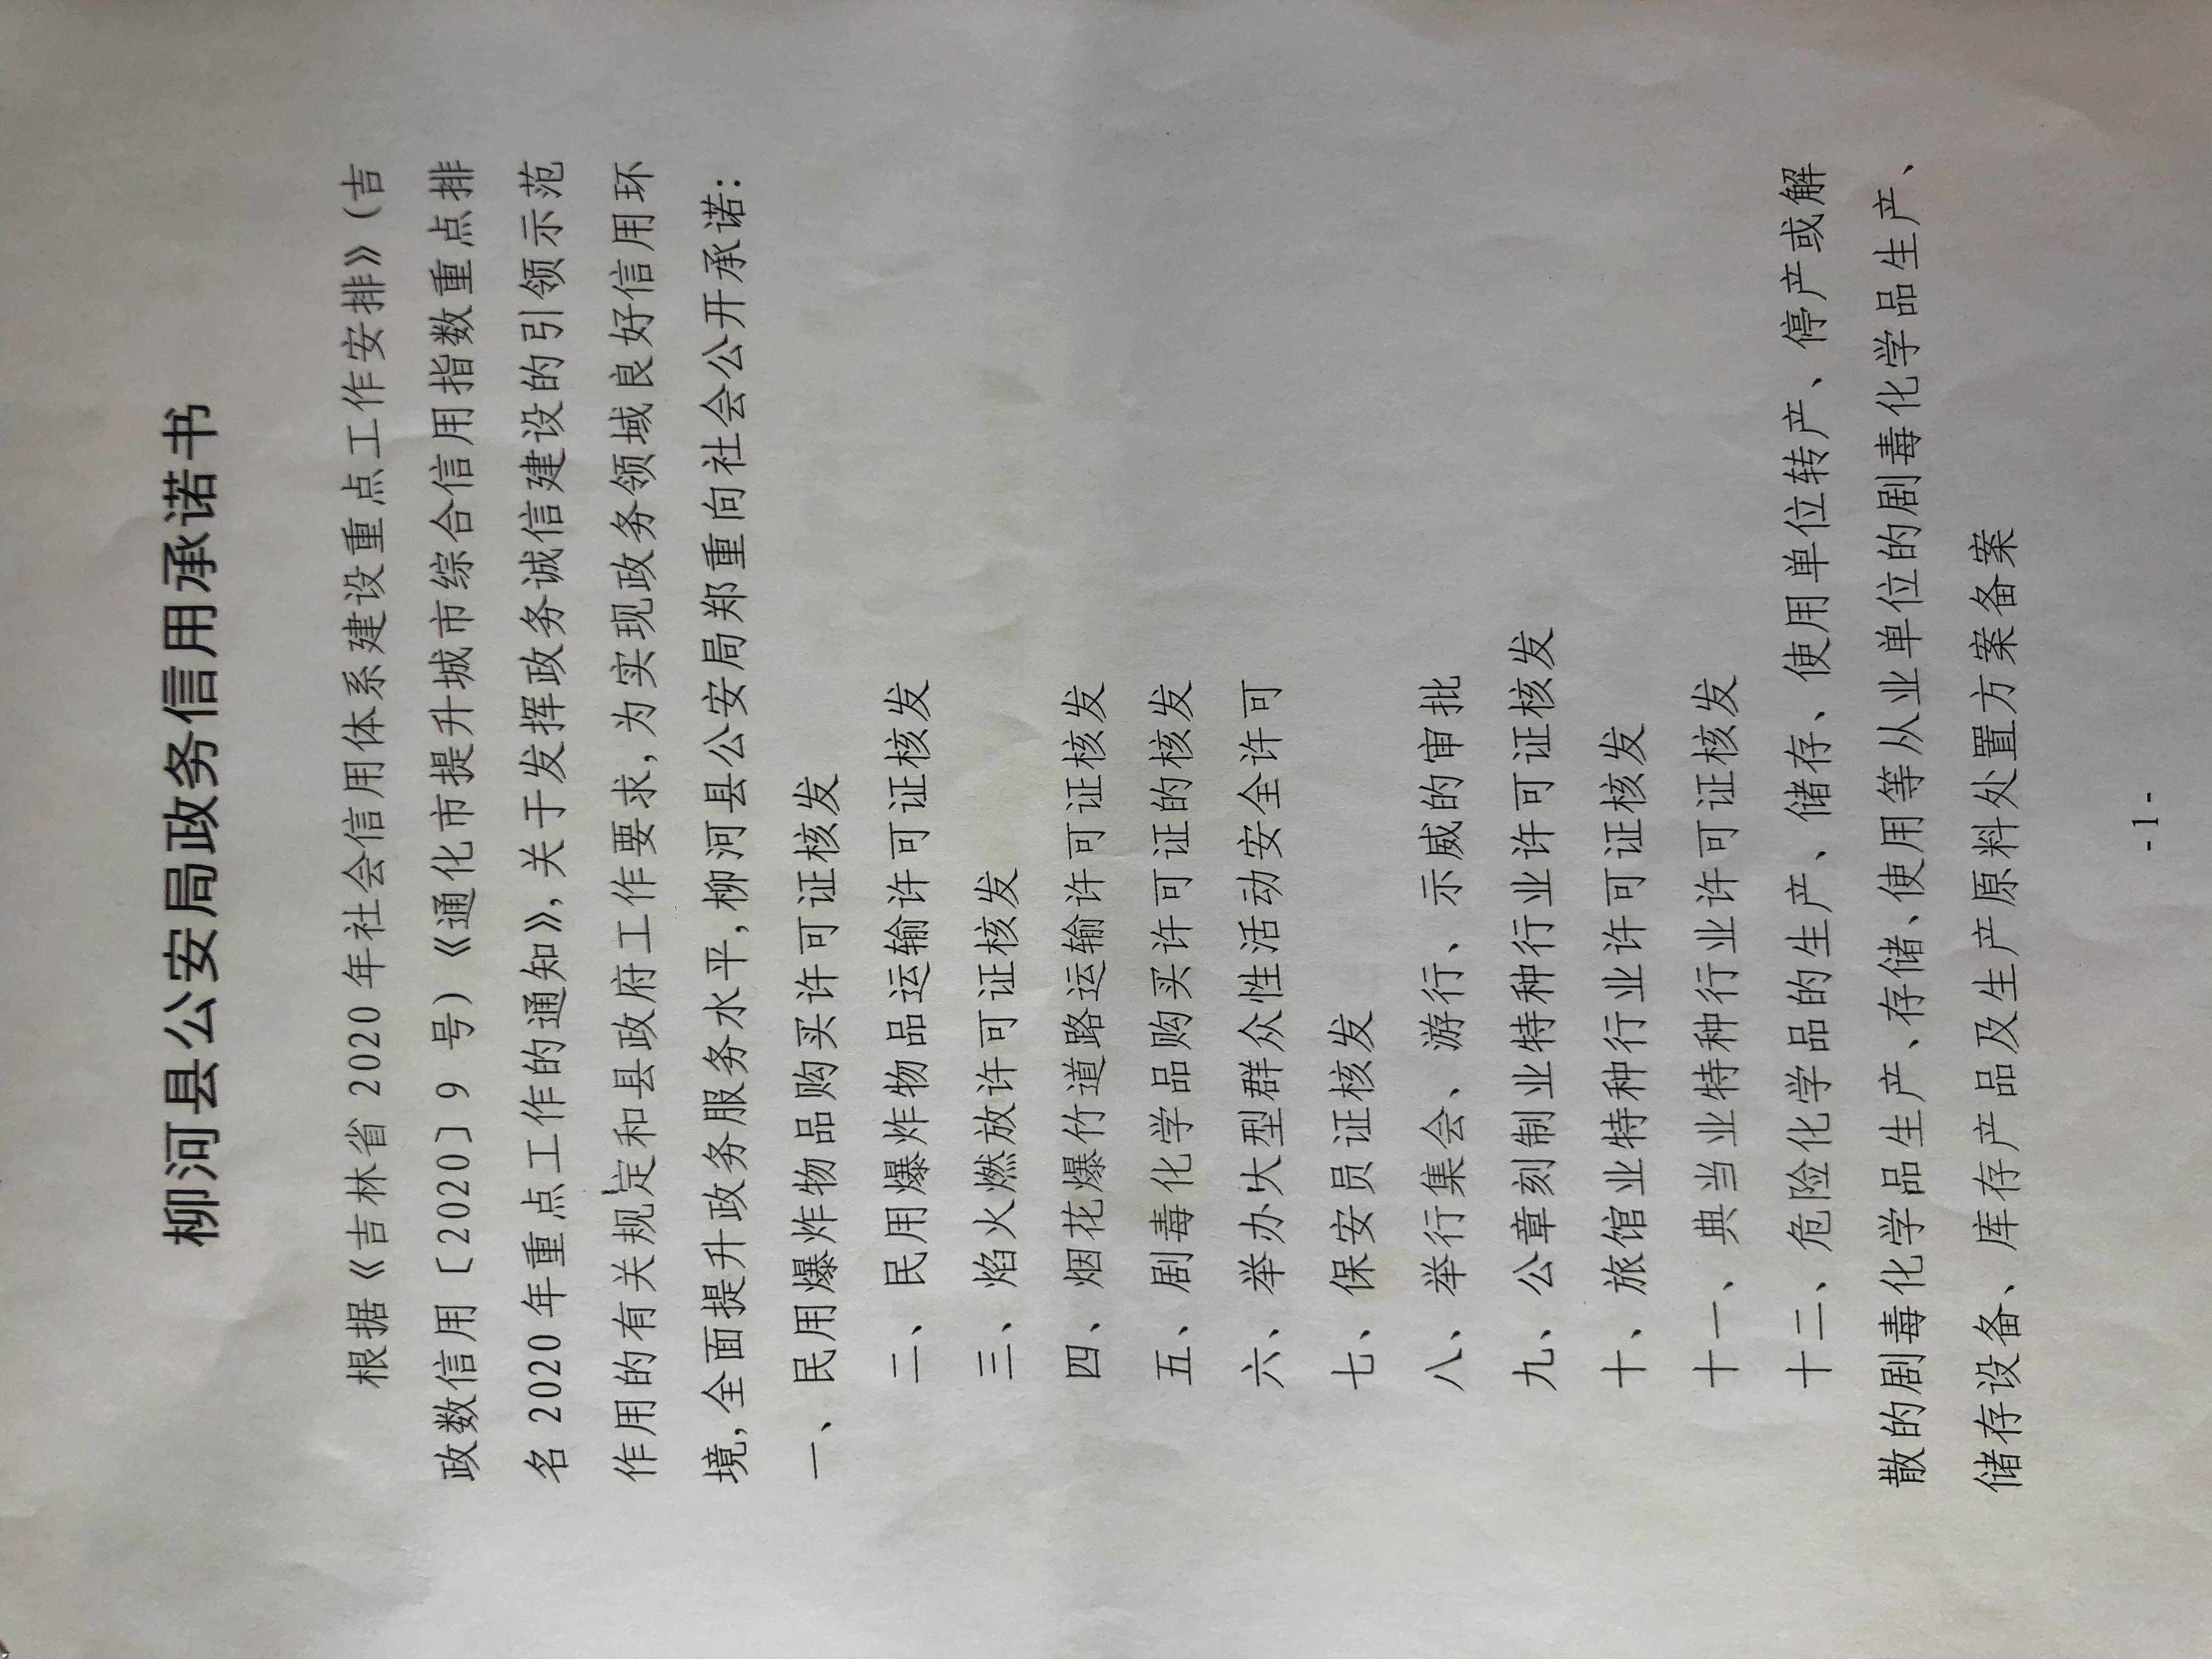 柳河县公安局政务信用承诺书
根据《吉林省 2020 年社会信用体系建设重点工作安排》（吉
政数信用〔2020〕9 号）《通化市提升城市综合信用指数重点排
名 2020 年重点工作的通知》，关于发挥政务诚信建设的引领示范
作用的有关规定和县政府工作要求，为实现政务领域良好信用环
境，全面提升政务服务水平，柳河县公安局郑重向社会公开承诺：
一、民用爆炸物品购买许可证核发
二、民用爆炸物品运输许可证核发
三、焰火燃放许可证核发
四、烟花爆竹道路运输许可证核发
五、剧毒化学品购买许可证的核发
六、举办大型群众性活动安全许可
七、保安员证核发
八、举行集会、游行、示威的审批
九、公章刻制业特种行业许可证核发
十、旅馆业特种行业许可证核发
十一、典当业特种行业许可证核发
十二、危险化学品的生产、储存、使用单位转产、停产或解
散的剧毒化学品生产、存储、使用等从业单位的剧毒化学品生产、
储存设备、库存产品及生产原料处置方案备案
- 1 -